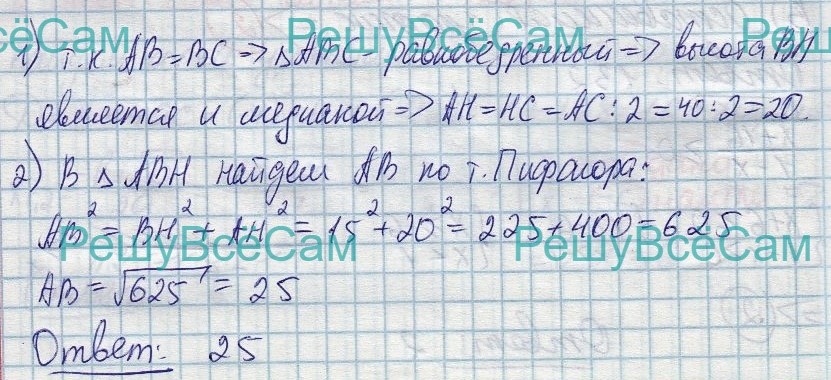 РешуВсёСам РешуВсёСам
1) т.к. AB=BC => △ABC - равнобедренный => высота BH
является и медианой => AH=HC=AC:2=40:2=20.
2) В △ABH найдем AB по т. Пифагора:
AB² = BH² + AH² = 15² + 20² = 225 + 400 = 625
РешуВсёСам РешуВсёСам
AB = √625 = 25
Ответ: 25